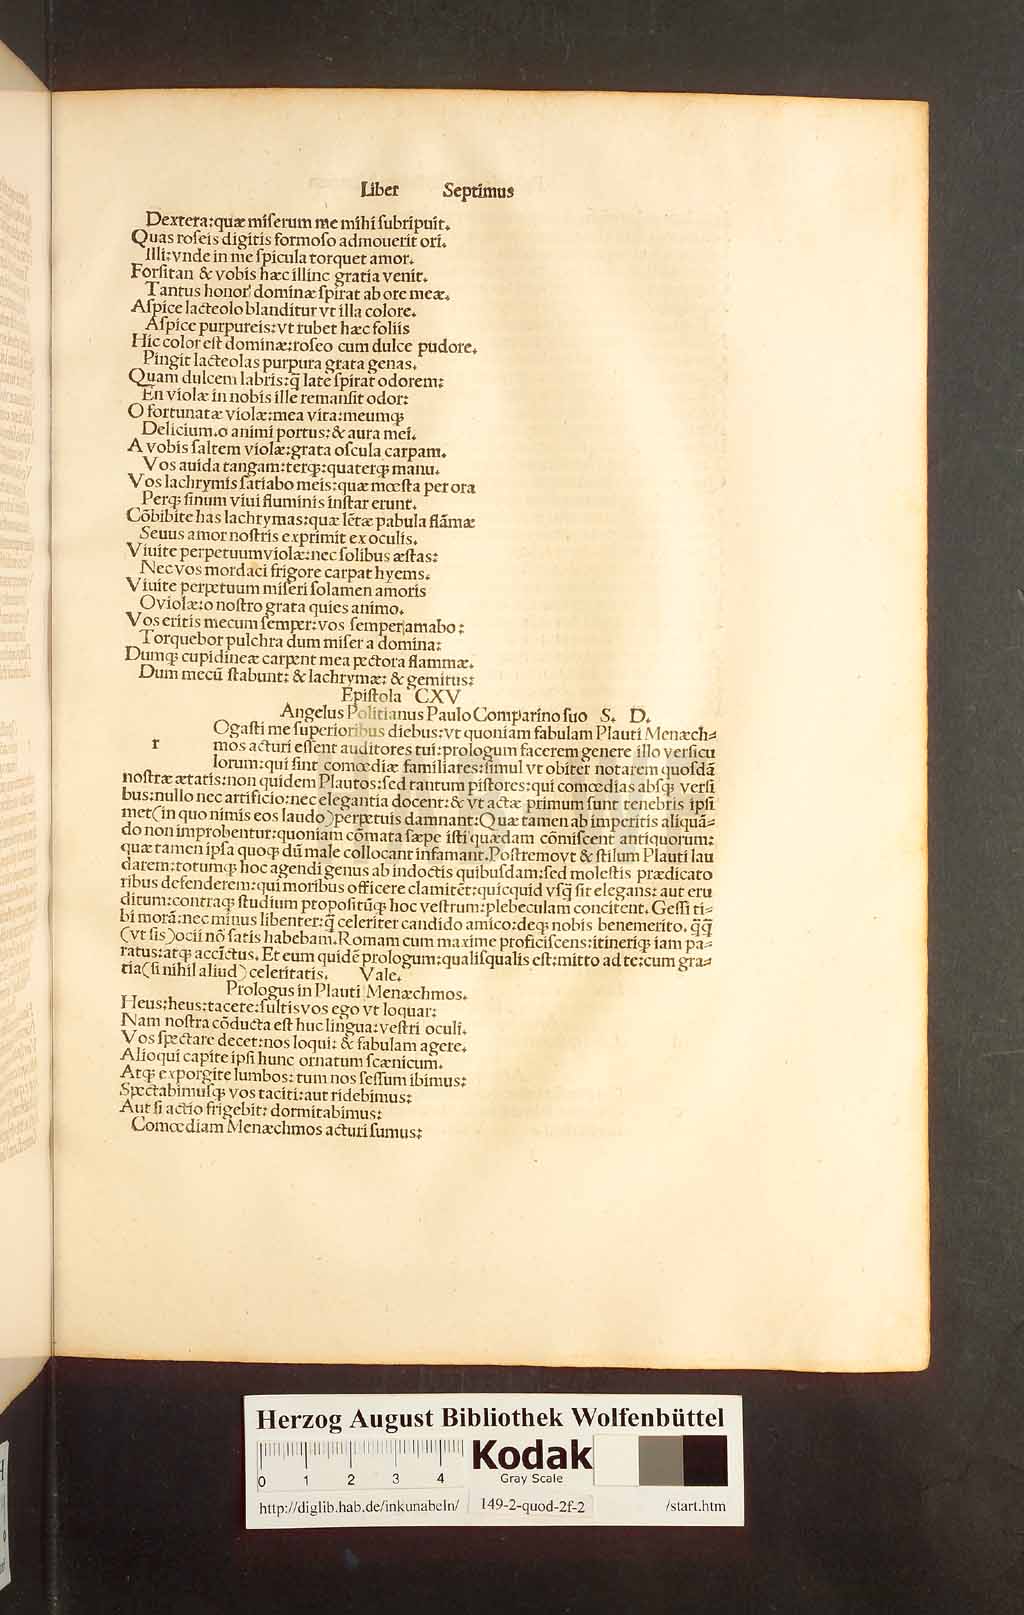 Liber Septimus
Dextera:quæ miſerum me mihi ſubripuit.
Quas roſeis digitis formoſo admouerit ori.
Illi:vnde in me ſpicula torquet amor.
Forſitan & vobis hæc illinc gratia venit.
Tantus honor dominæ ſpirat ab ore meæ.
Aſpice lacteolo blanditur vt illa colore.
Aſpice purpureis:vt rubet hæc foliis
Hic color eſt dominæ:roſeo cum dulce pudore.
Pingit lacteolas purpura grata genas.
Quam dulcem labris:q̃ late ſpirat odorem:
En violæ in nobis ille remanſit odor:
O fortunatæ violæ:mea vita:meumqꝫ
Delicium.o animi portus:& aura mei.
A vobis ſaltem violæ:grata oſcula carpam.
Vos auida tangam:terqꝫ:quaterqꝫ manu.
Vos lachrymis ſatiabo meis:quæ mœſta per ora
Perqꝫ ſinum viui fluminis inſtar erunt.
Cõbibite has lachrymas:quæ lẽtæ pabula flãmæ
Seuus amor noſtris exprimit ex oculis.
Viuite perpetuum violæ:nec ſolibus æſtas:
Nec vos mordaci frigore carpat hyems.
Viuite perpetuum miſeri ſolamen amoris
O violæ:o noſtro grata quies animo.
Vos eritis mecum ſemper:vos ſemper amabo:
Torquebor pulchra dum miſer a domina:
Dumqꝫ cupidineæ carpent mea pectora flammæ.
Dum mecũ ſtabunt: & lachrymæ: & gemitus:
Epiſtola CXV
Angelus Politianus Paulo Comparino ſuo S. D.
r Ogaſti me ſuperioribus diebus:vt quoniam fabulam Plauti Menæch⸗
mos acturi eſſent auditores tui:prologum facerem genere illo verſicu
lorum:qui ſint comœdiæ familiares:ſimul vt obiter notarem quoſdã
noſtræ ætatis:non quidem Plautos:ſed tantum piſtores:qui comœdias abſqꝫ verſi
bus:nullo nec artificio:nec elegantia docent:& vt actæ primum ſunt tenebris ipſi
met(in quo nimis eos laudo)perpetuis damnant:Quæ tamen ab imperitis aliquã⸗
do non improbentur:quoniam cõmata ſæpe iſti quædam cõmiſcent antiquorum:
quæ tamen ipſa quoqꝫ dũ male collocant infamant.Poſtremo vt & ſtilum Plauti lau
darem:totumqꝫ hoc agendi genus ab indoctis quibuſdam:ſed moleſtis prædicato
ribus defenderem:qui moribus officere clamitẽt:quicquid vſq̃ ſit elegans: aut eru
ditum:contraqꝫ ſtudium propoſitũqꝫ hoc veſtrum:plebeculam concitent. Geſſi ti⸗
bi morã:nec minus libenter:q̃ celeriter candido amico:deqꝫ nobis benemerito. q̃q̃
(vt ſis)ocii nõ ſatis habebam.Romam cum maxime proficiſcens:itineriqꝫ iam pa⸗
ratus:atqꝫ accĩctus. Et eum quidẽ prologum:qualiſqualis eſt:mitto ad te:cum gra⸗
tia(ſi nihil aliud)celeritatis. Vale.
Prologus in Plauti Menæchmos.
Heus:heus:tacete:ſultis vos ego vt loquar:
Nam noſtra cõducta eſt huc lingua:veſtri oculi.
Vos ſpectare decet:nos loqui: & fabulam agere.
Alioqui capite ipſi hunc ornatum ſcænicum.
Atqꝫ exporgite lumbos: tum nos ſeſſum ibimus:
Spectabimuſqꝫ vos taciti:aut ridebimus:
Aut ſi actio frigebit: dormitabimus:
Comœdiam Menæchmos acturi ſumus:
Herzog August Bibliothek Wolfenbüttel
0 1 2 3 4
Kodak
Gray Scale
http://diglib.hab.de/inkunabeln/ 149-2-quod-2f-2 /start.htm